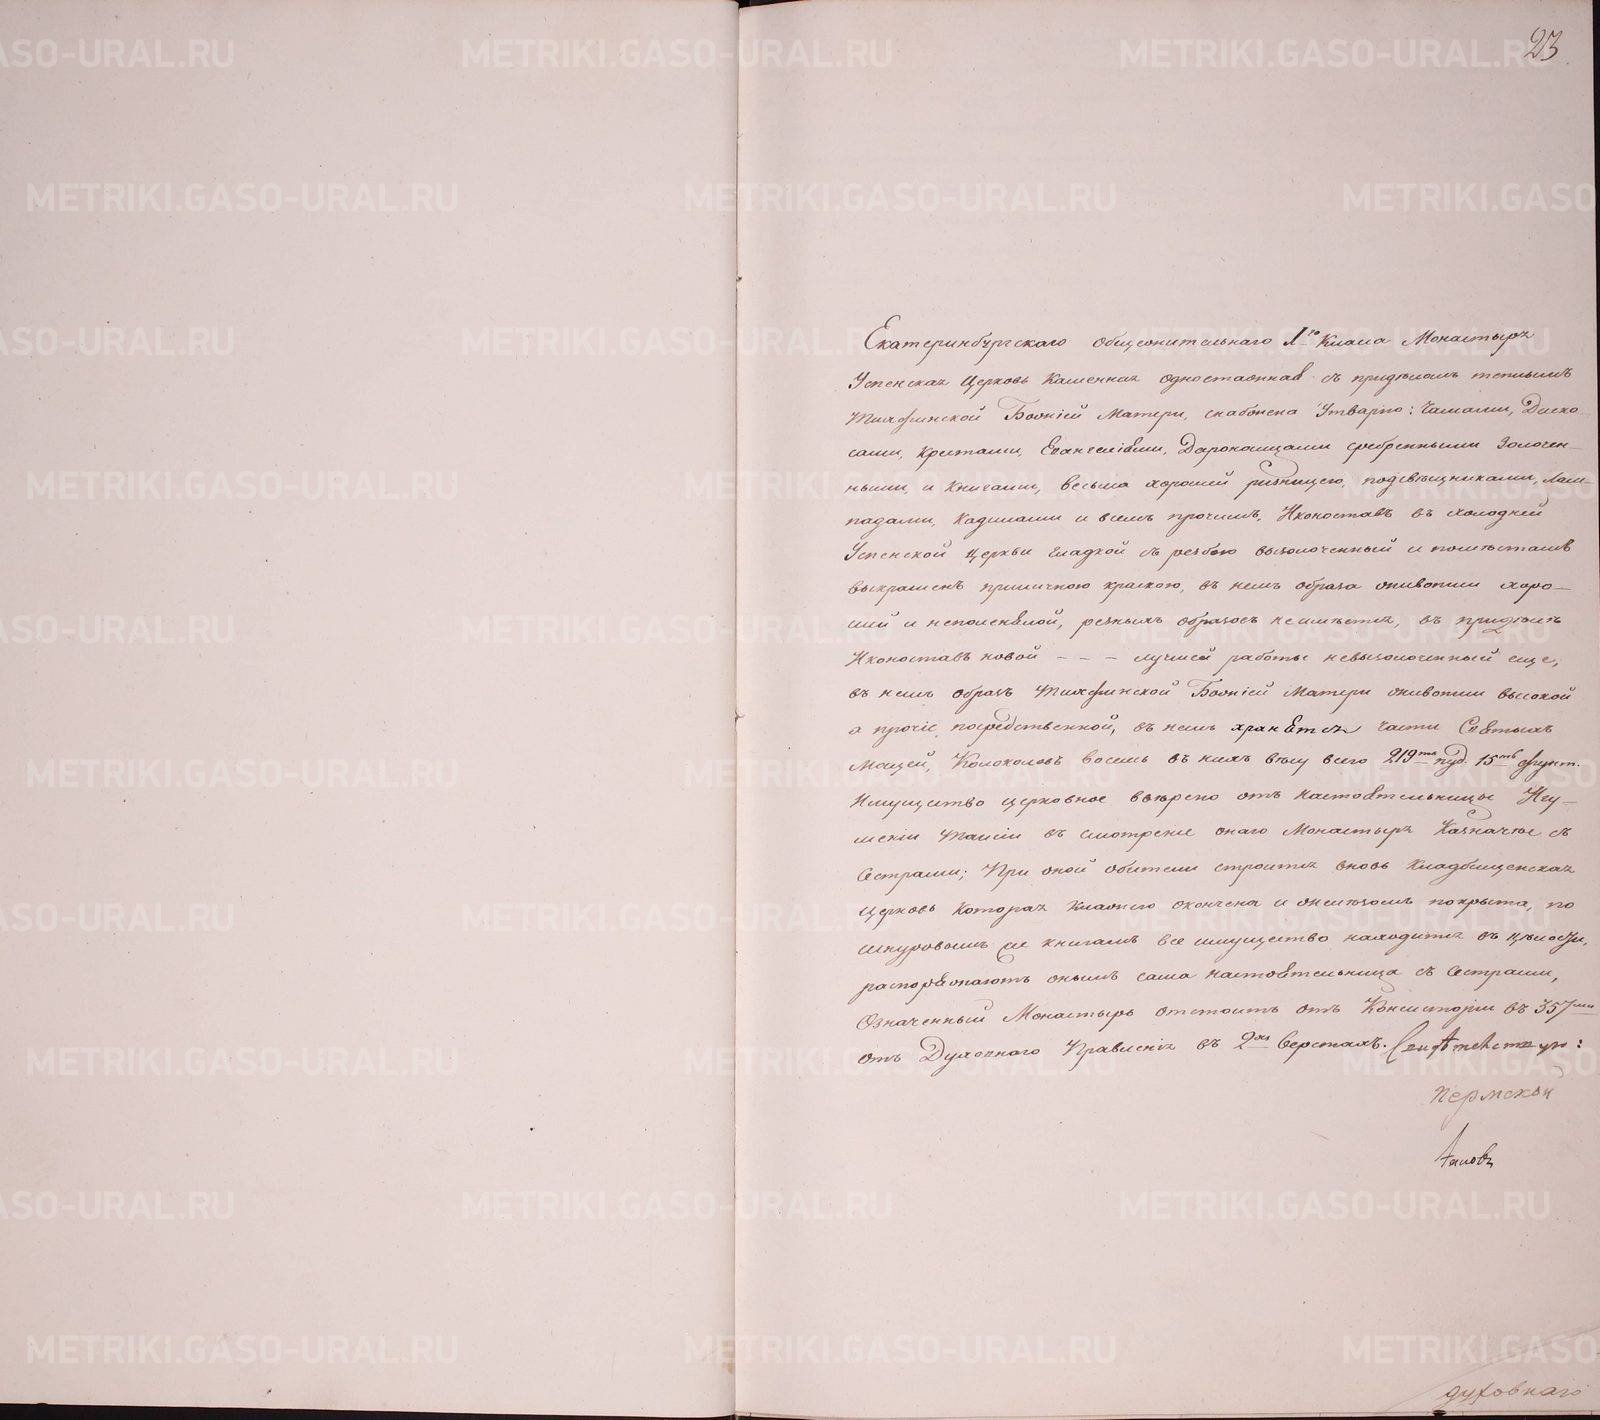 23
Екатеринбургскаго общежительнаго 1го Класа Монастыря
Успенская Церковь Каменная одноставная съ придѣломъ теплымъ
Тихфинской Божіей Матери, снабжена Утварью: Чашами, Диско-
сами, Крестами, Евангеліями, Дароносицами сребренными Золочен-
ными, и Книгами, весьма хорошей ризницею, подсвѣщниками, Лам-
падами, Кадилами и всемъ прочимъ, Иконостасъ въ холодней
Успенской Церкви гладкой съ резбою вызолоченный и поместамъ
выкрашенъ приличною краскою, въ немъ образа живописи хоро-
шій и неполинялой, резныхъ образовъ неимѣется, въ придѣлѣ
Иконостасъ новой - - - лучшей работы невызолоченный еще,
въ немъ образъ Тихфинской Божіей Матери живописи высокой
а прочіе посредственной, въ немъ хранятся части Святыхъ
Мощей, Колоколовъ восемь въ нихъ вѣсу всего 219ть пуд. 15ть фунт.
Имущество церковное ввѣрено отъ настоятельницы Игу-
меніи Таисіи въ смотреніе онаго Монастыря Казначѣе съ
Сестрами; При оной обители строится вновь Кладбищенская
Церковь Которая Кладкою окончена и желѣзомъ покрыта, по
шнуровымъ ея книгамъ все имущество находится въ цѣлости,
распоряжаютъ онымъ сама настоятельница съ Сестрами,
Означенный Монастырь отстоитъ отъ Консисторіи въ 357ми
отъ Духовнаго Правленія въ 2хъ верстахъ. Свидѣтельствую:
Пермской
духовнаго